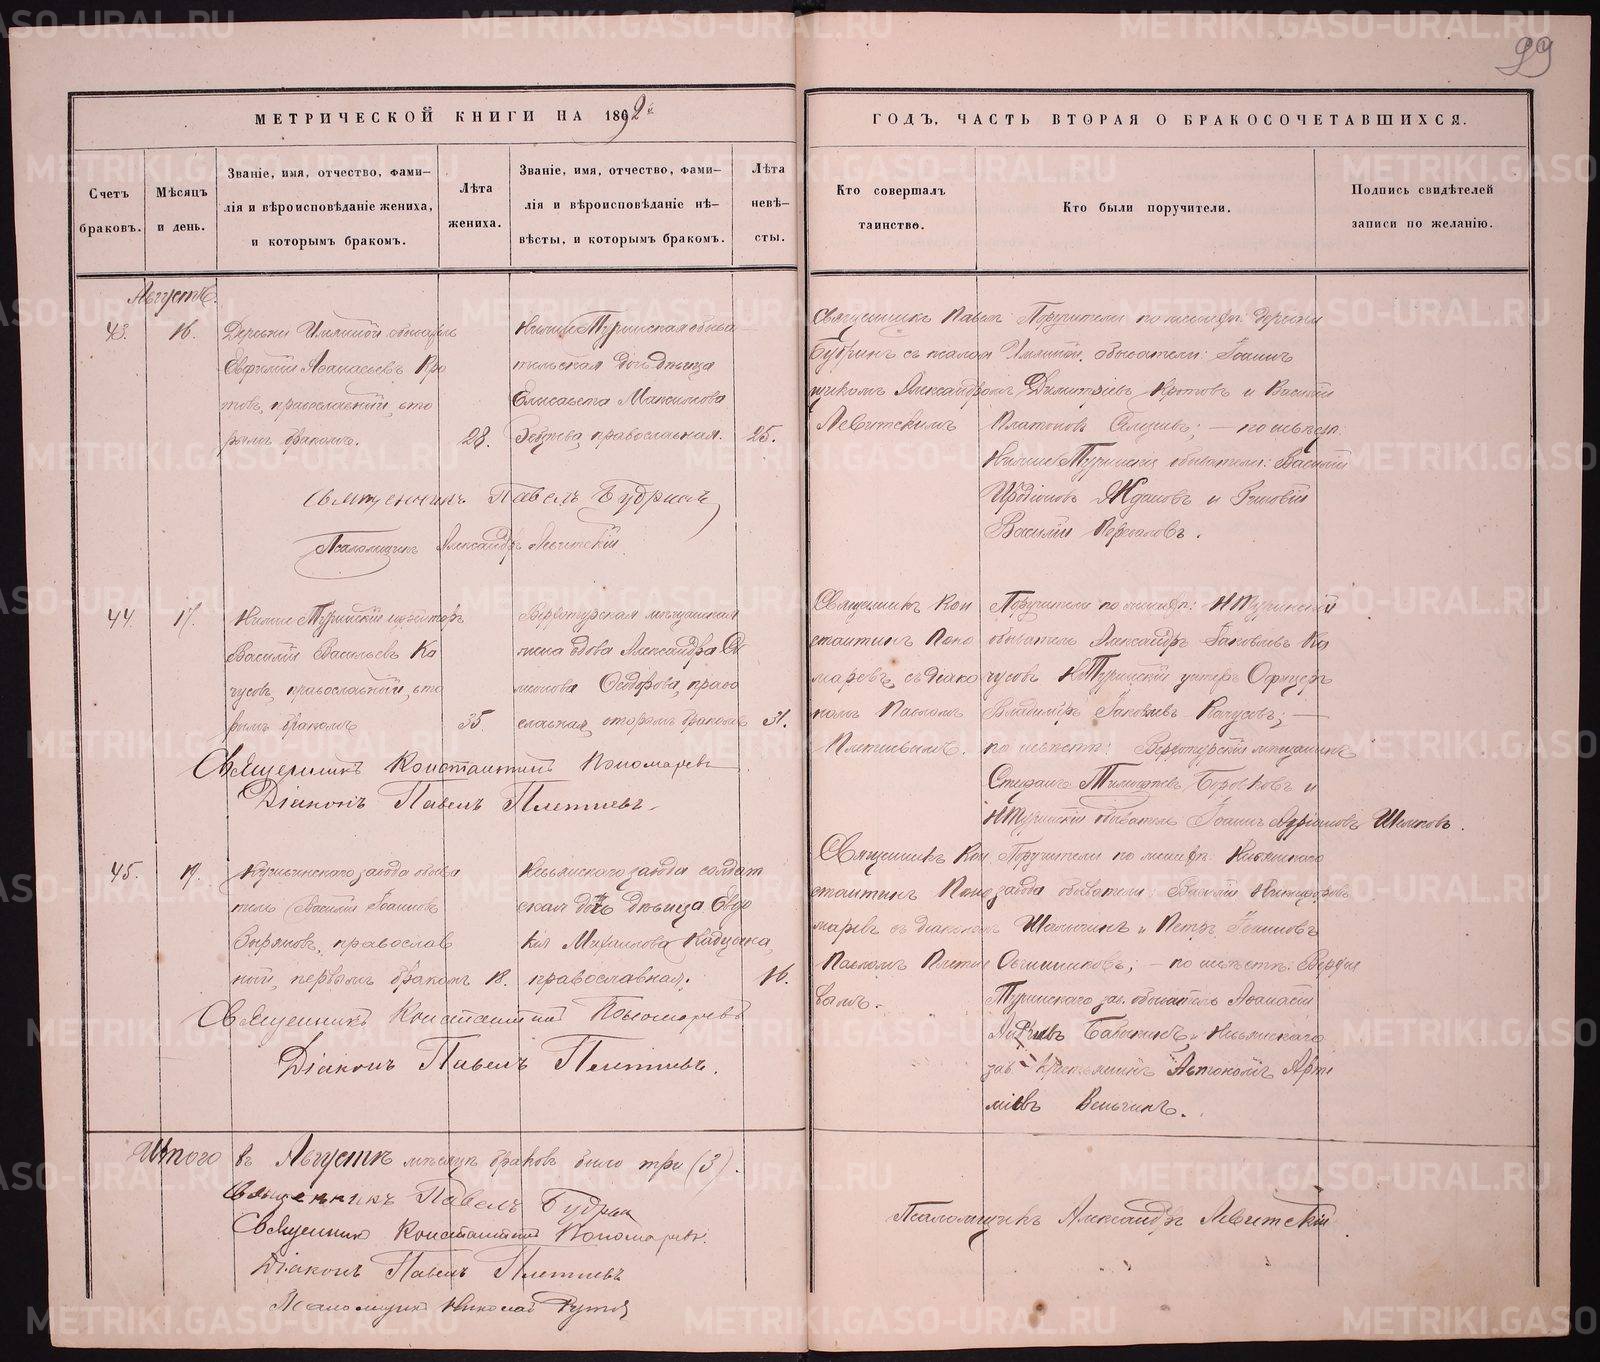 99
МЕТРИЧЕСКОЙ КНИГИ НА 1892й
ГОДЪ, ЧАСТЬ ВТОРАЯ О БРАКОСОЧЕТАВШИХСЯ.
Счетъ браковъ.
Мѣсяцъ и день.
Званіе, имя, отчество, фами-
лія и вѣроисповѣданіе жениха,
и которымъ бракомъ.
Лѣта жениха.
Званіе, имя, отчество, фами-
лія и вѣроисповѣданіе нѣ-
вѣсты, и которымъ бракомъ.
Лѣта невѣ-
сты.
Кто совершалъ таинство.
Кто были поручители.
Подпись свидѣтелей записи по желанію.
Августъ.
43.
16.
Деревни обыватель
Евфимій Аѳанасьевъ Кро
товъ, православный, вто
рымъ бракомъ.
28.
Нижне Туринская обыва
тельская дочь дѣвица
Елисавета Максимова
православная.
25.
Священникъ Павелъ
Будринъ съ псалом
щикомъ Александромъ
Левитскимъ
Поручители по женихѣ: деревни
обыватели: Іоаннъ
Димитріевъ Кротовъ и Василій
Платоновъ — по невѣстѣ:
Нижне Туринскіе обыватели: Василій
Иродіоновъ Ждановъ и
Василій
Священникъ Павелъ Будринъ
Псаломщикъ Александръ Левитскій
44
17.
Нижне Туринскій
Василій Васильевъ Ка
чусовъ, православный, вто
рымъ бракомъ
35.
Верхотурская мѣщанская
вдова Александра Си
меонова Ѳедорова, право
славная, вторымъ бракомъ
31.
Священникъ Кон
стантинъ Поно
маревъ, съ діако
номъ Павломъ
Плетневымъ.
Поручители по женихѣ: НТуринскій
обыватель Александръ Іаковлевъ Ка
чусовъ, НТуринскій унтеръ Офицеръ
Владимиръ Іаковлевъ Качусовъ; —
по невѣстѣ: Верхотурскій мѣщанинъ
Стефанъ Тимофѣевъ Боровковъ и
НТуринскій обыватель Іоаннъ Адріановъ
Священникъ Константинъ Пономаревъ
Діаконъ Павелъ Плетневъ.
45.
19.
завода обыва
тель Василій Іоанновъ
православ
ный, первымъ бракомъ
18.
Невьянскаго завода солдат
ская дочь дѣвица Евдо
кія Михаилова
православная.
16.
Священникъ Кон
стантинъ Поно
маревъ съ діакономъ
Павломъ Плетне
вымъ.
Поручители по женихѣ: Невьянскаго
завода обыватели: Василій Никифоровъ
и Петръ Іоанновъ
Овчинниковъ; — по невѣстѣ: Верхне
Туринскаго зав. обыватель Аѳанасій
Невьянскаго
зав. крестьянинъ Арте
міевъ
Священникъ Константинъ Пономаревъ
Діаконъ Павелъ Плетневъ.
Итого въ Августѣ мѣсяцѣ браковъ было три (3).
Священникъ Павелъ Будринъ
Священникъ Константинъ Пономаревъ.
Діаконъ Павелъ Плетневъ
Псаломщикъ Николай
Псаломщикъ Александръ Левитскій
METRIKI.GASO-URAL.RU